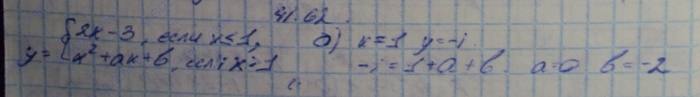 41.62.
y = { 2x - 3, если x ≤ 1,
x² + ax + b, если x > 1
а) x = 1 y = -1
-1 = 1 + a + b. a = 0 b = -2